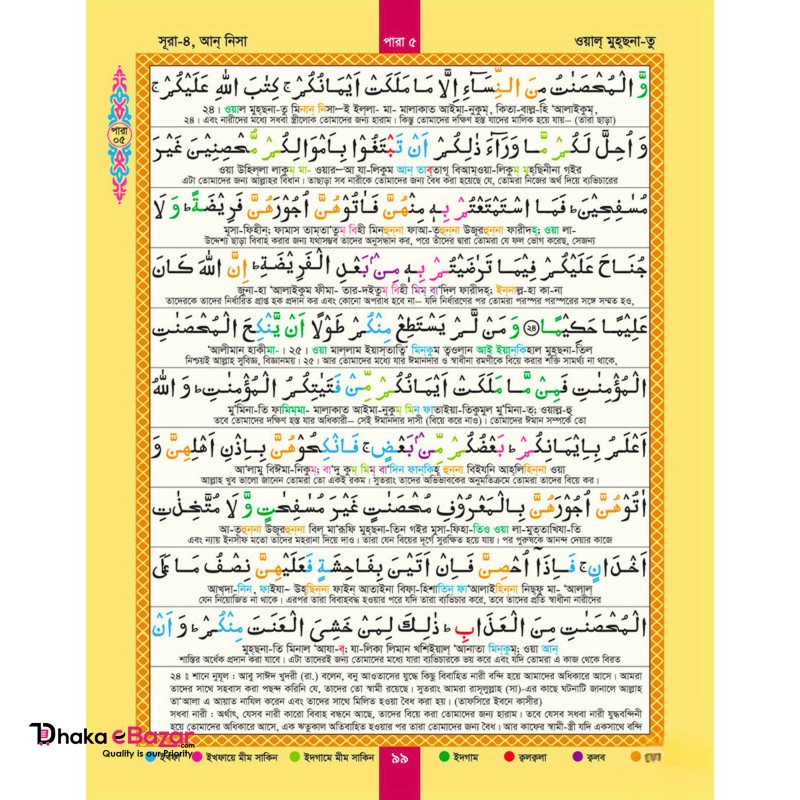 সূরা-৪, আন্ নিসা
পারা ৫
ওয়াল্ মুহ্ছনা-তু
পারা
০৫
وَّ الْمُحْصَنٰتُ مِنَ النِّسَآءِ اِلَّا مَا مَلَكَتْ اَيْمَانُكُمْ ۚ كِتٰبَ اللّٰهِ عَلَيْكُمْ ۚ
২৪। ওয়াল মুহছনা-তু মিনান নিসা—ই ইল্লা- মা- মালাকাত আইমা-নুকুম, কিতা-বাল্ল-হি 'আলাইকুম,
২৪। এবং নারীদের মধ্যে সধবা স্ত্রীলোক তোমাদের জন্য হারাম। কিন্তু তোমাদের দক্ষিণ হস্ত যাদের মালিক হয়ে যায়– (তারা ছাড়া)
وَ اُحِلَّ لَكُمْ مَّا وَرَآءَ ذٰلِكُمْ اَنْ تَبْتَغُوْا بِاَمْوَالِكُمْ مُّحْصِنِيْنَ غَيْرَ
ওয়া উহিল্লা লাকুম মা- ওয়ার—আ যা-লিকুম আন্ তাব্তাগূ বিআম্ওয়া-লিকুম মুহছিনীনা গইর
এটা তোমাদের জন্য আল্লাহর বিধান। তাছাড়া সব নারীকে তোমাদের জন্য বৈধ করা হয়েছে যে, তোমরা নিজের অর্থ দিয়ে ব্যভিচারের
مُسٰفِحِيْنَ ؕ فَمَا اسْتَمْتَعْتُمْ بِهٖ مِنْهُنَّ فَاٰتُوْهُنَّ اُجُوْرَهُنَّ فَرِيْضَةً ؕ وَ لَا
মুসা-ফিহীন; ফামাস তাম্তা'তুম্ বিহী মিনহুন্না ফাআ-তূহুন্না উজূরহুন্না ফারীদহ; ওয়া লা-
উদ্দেশ্য ছাড়া বিবাহ করার জন্য যথাসম্ভব তাদের অনুসন্ধান কর, পরে তাদের দ্বারা তোমরা যে ফল ভোগ করেছ, সেজন্য
جُنَاحَ عَلَيْكُمْ فِيْمَا تَرٰضَيْتُمْ بِهٖ مِنْۢ بَعْدِ الْفَرِيْضَةِ ؕ اِنَّ اللّٰهَ كَانَ
জুনা-হা 'আলাইকুম ফীমা- তার-দইতুম্ বিহী মিম্ বা'দিল ফারীদহ; ইন্নাল্ল-হা কা-না
তাদেরকে তাদের নির্ধারিত প্রাপ্ত হক প্রদান কর এবং কোনো অপরাধ হবে না– যদি নির্ধারণের পর তোমরা পরস্পর পরস্পরের সঙ্গে সম্মত হও,
عَلِيْمًا حَكِيْمًا ﴿২৪﴾ وَ مَنْ لَّمْ يَسْتَطِعْ مِنْكُمْ طَوْلًا اَنْ يَّنْكِحَ الْمُحْصَنٰتِ
'আলীমান হাকীমা-। ২৫। ওয়া মাল্লাম ইয়াস্তাতি' মিন্কুম তূওলান আই ইয়ান্কিহাল মুহছনা-তিল
নিশ্চয়ই আল্লাহ সুবিজ্ঞ, বিজ্ঞানময়। ২৫। আর তোমাদের মধ্যে যার ঈমানদার ও স্বাধীনা রমণীকে বিয়ে করার শক্তি সামর্থ্য না থাকে,
الْمُؤْمِنٰتِ فَمِنْ مَّا مَلَكَتْ اَيْمَانُكُمْ مِّنْ فَتَيٰتِكُمُ الْمُؤْمِنٰتِ ؕ وَ اللّٰهُ
মু'মিনা-তি ফামিম্মা- মালাকাত আইমা-নুকুম মিন্ ফাতাইয়া-তিকুমুল মু'মিনা-ত; ওয়াল্ল-হু
তবে তোমাদের দক্ষিণ হস্ত যার অধিকারী– সেই ঈমানদার দাসী (বিয়ে করে নাও)। তোমাদের ঈমান সম্পর্কে তো
اَعْلَمُ بِاِيْمَانِكُمْ ؕ بَعْضُكُمْ مِّنْۢ بَعْضٍ ۚ فَانْكِحُوْهُنَّ بِاِذْنِ اَهْلِهِنَّ وَ
আ'লামু বিঈমা-নিকুম; বা'দু কুম মিম্ বা'দিন ফান্কিহূ হুন্না বিইয্নি আহলিহিন্না ওয়া
আল্লাহ খুব ভালো জানেন তোমরা তো একই রকম। সুতরাং তাদের অভিভাবকের অনুমতিক্রমে তোমরা তাদের বিয়ে কর।
اٰتُوْهُنَّ اُجُوْرَهُنَّ بِالْمَعْرُوْفِ مُحْصَنٰتٍ غَيْرَ مُسٰفِحٰتٍ وَّ لَا مُتَّخِذٰتِ
আ-তূহুন্না উজূরহুন্না বিল্ মা'রূফি মুহছনা-তিন গইর মুসা-ফিহা-তিও ওয়া লা-মুত্তাখিযা-তি
এবং ন্যায় ইনসাফ মতো তাদের মহরানা দিয়ে দাও। তারা যেন বিয়ের দূর্গে সুরক্ষিত হয়ে যায়। পর পুরুষকে আনন্দ দেয়ার কাজে
اَخْدَانٍ ۚ فَاِذَاۤ اُحْصِنَّ فَاِنْ اَتَيْنَ بِفَاحِشَةٍ فَعَلَيْهِنَّ نِصْفُ مَا عَلَى
আখ্দা-নিন, ফাইযা~ উহছিন্না ফাইন্ আতাইনা বিফা-হিশাতিন ফা'আলাইহিন্না নিছ্ফু মা- 'আলাল্
যেন নিয়োজিত না থাকে। এরপর তারা বিবাহবদ্ধ হওয়ার পরে যদি তারা ব্যভিচার করে, তবে তাদের প্রতি স্বাধীনা নারীদের
الْمُحْصَنٰتِ مِنَ الْعَذَابِ ؕ ذٰلِكَ لِمَنْ خَشِيَ الْعَنَتَ مِنْكُمْ ؕ وَ اَنْ
মুহছনা-তি মিনাল 'আযা-ব্; যা-লিকা লিমান খশিইয়াল্ 'আনাতা মিন্কুম; ওয়া আন্
শাস্তির অর্ধেক প্রদান করা যাবে। এটা তাদেরই জন্য তোমাদের মধ্যে যারা ব্যভিচারকে ভয় করে এবং যদি তোমরা এ কাজ থেকে বিরত
২৪ ঃ শানে নুযূল : আবু সাঈদ খুদরী (রা.) বলেন, বনু আওতাসের যুদ্ধে কিছু বিবাহিত নারী বন্দি হয়ে আমাদের অধিকারে আসে। আমরা
তাদের সাথে সহবাস করা পছন্দ করিনি যে, তাদের তো স্বামী রয়েছে। সুতরাং আমরা রাসূলুল্লাহ (সা)-এর কাছে ঘটনাটি জানালে আল্লাহ
তা'আলা এ আয়াত নাযিল করেন এবং তাদের সাথে মিলিত হওয়া বৈধ করা হয়। (তাফসিরে ইবনে কাসীর)
সধবা নারী : অর্থাৎ, যেসব নারী কারো বিবাহ বন্ধনে আছে, তাদের বিয়ে করা তোমাদের জন্য হারাম। তবে যেসব সধবা নারী যুদ্ধবন্দিনী
হয়ে তোমাদের অধিকারে আসে, এক ঋতুকাল অতিবাহিত হওয়ার পর তারা তোমাদের জন্য বৈধ। আর কাফের স্বামী-স্ত্রী যদি একসাথে বন্দি
Dhaka eBazar.com
Quality is our Priority
ইখফা
ইখফায়ে মীম সাকিন
ইদগামে মীম সাকিন
৯৯
ইদগাম
ক্বলক্বলা
ক্বলব